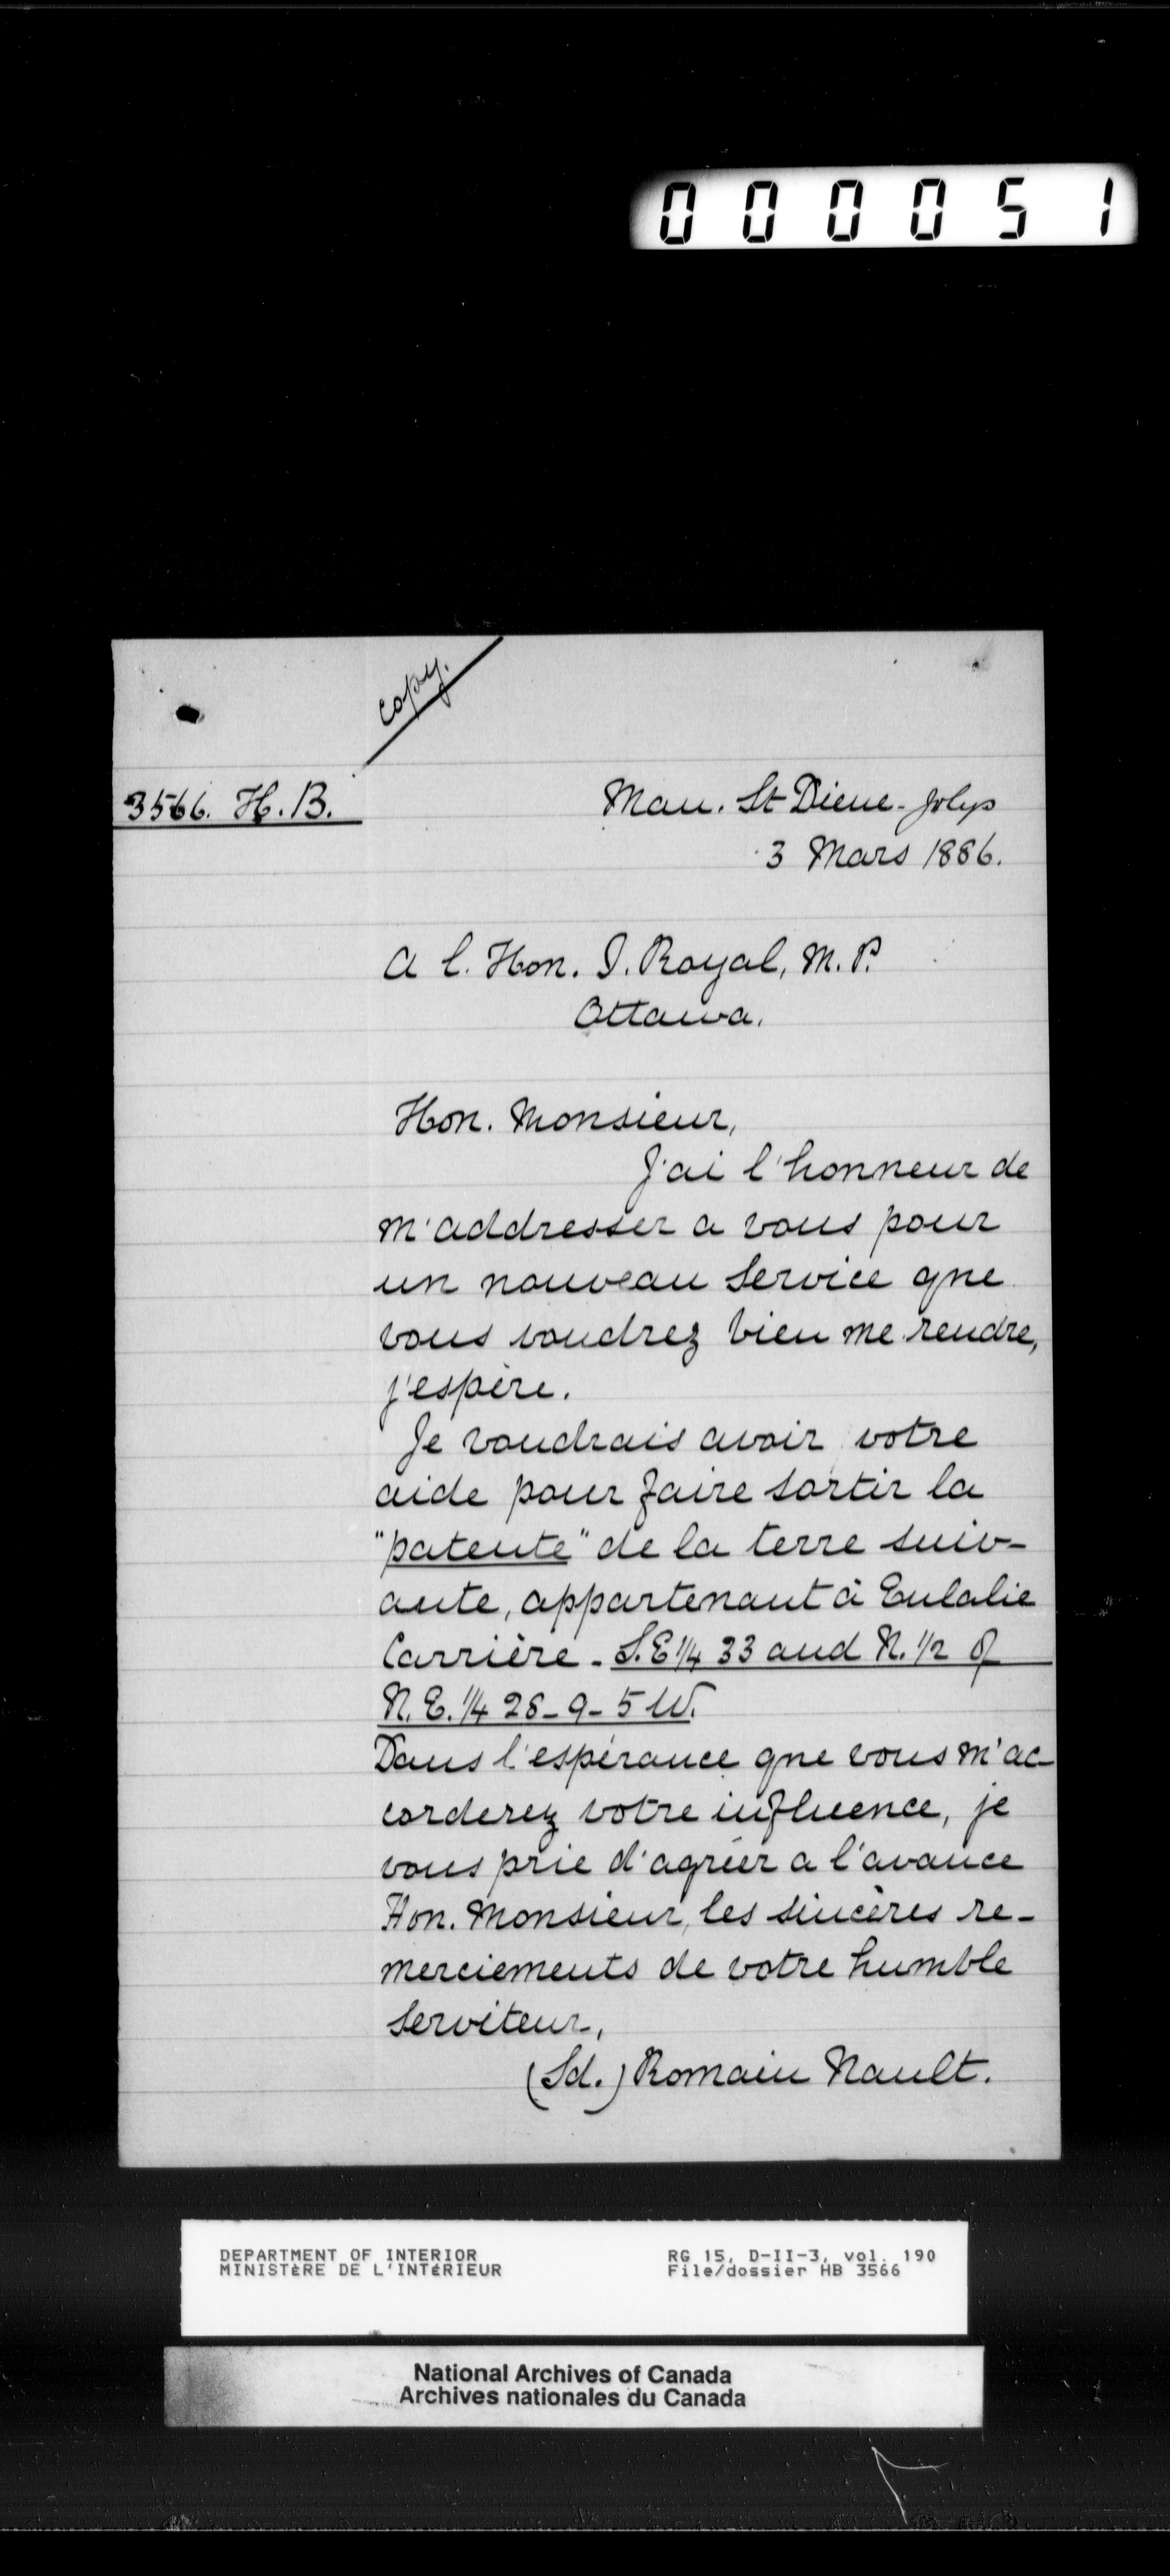 000051
copy.
3566. H.B.
Man. St Dieue-Jolys
3 Mars 1886.
A l. Hon. J. Royal, M.P.
Ottawa.
Hon. Monsieur,
J'ai l'honneur de
m'addresser a vous pour
un nouveau service que
vous voudrez bien me rendre,
j'espère.
Je voudrais avoir votre
aide pour faire sortir la
"patente" de la terre suiv-
ante, appartenant à Eulalie
Carrière - S.E 1/4 33 and N. 1/2 of
N.E. 1/4 28-9-5 W.
Dans l'espérance que vous m'ac-
corderez votre influence, je
vous prie d'agréer a l'avance
Hon. Monsieur, les sincères re-
merciements de votre humble
serviteur,
(Sd.) Romain Nault.
DEPARTMENT OF INTERIOR RG 15, D-II-3, vol. 190
MINISTÈRE DE L'INTÉRIEUR File/dossier HB 3566
National Archives of Canada
Archives nationales du Canada